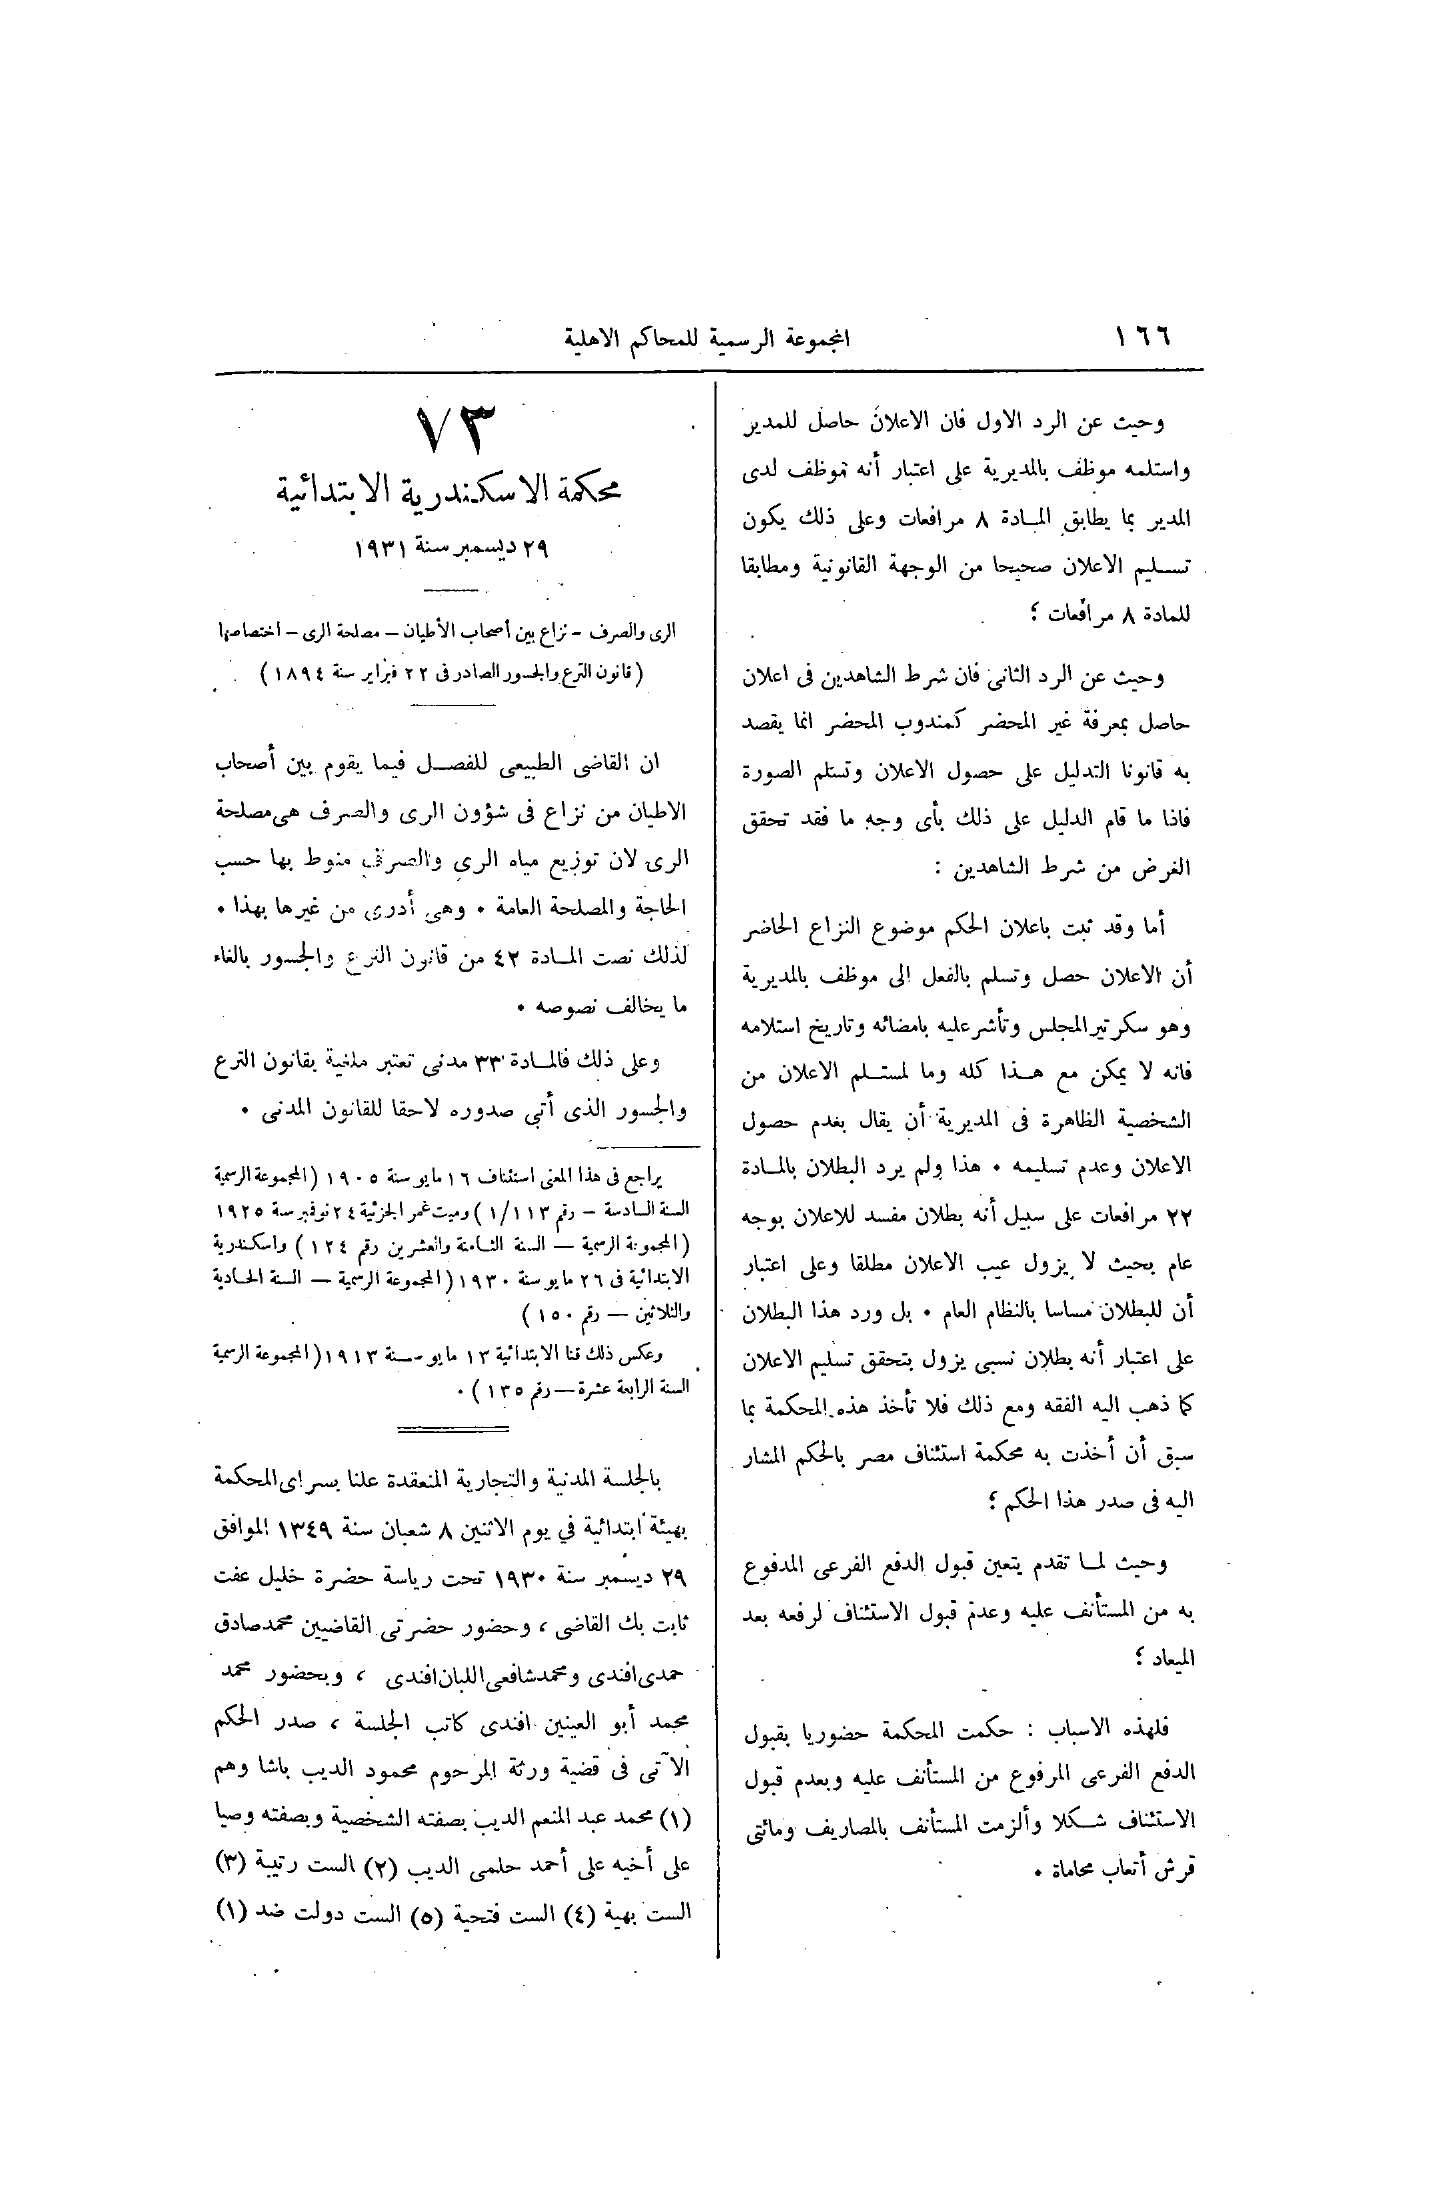 ١٦٦
المجموعة الرسمية للمحاكم الاهلية
وحيث عن الرد الاول فان الاعلان حاصل للمدير
واستلمه موظف بالمديرية على اعتبار أنه موظف لدى
المدير بما يطابق المادة ٨ مرافعات وعلى ذلك يكون
تسليم الاعلان صحيحا من الوجهة القانونية ومطابقا
للمادة ٨ مرافعات ؛
وحيث عن الرد الثانى فان شرط الشاهدين فى اعلان
حاصل بمعرفة غير المحضر كمندوب المحضر انما يقصد
به قانونا التدليل على حصول الاعلان وتسلم الصورة
فاذا ما قام الدليل على ذلك بأى وجه ما فقد تحقق
الغرض من شرط الشاهدين :
أما وقد ثبت باعلان الحكم موضوع النزاع الحاضر
أن الاعلان حصل وتسلم بالفعل الى موظف بالمديرية
وهو سكرتير المجلس وتأشر عليه بامضائه وتاريخ استلامه
فانه لا يمكن مع هذا كله وما لمستلم الاعلان من
الشخصية الظاهرة فى المديرية أن يقال بعدم حصول
الاعلان وعدم تسليمه ٠ هذا ولم يرد البطلان بالمادة
٢٢ مرافعات على سبيل أنه بطلان مفسد للاعلان بوجه
عام بحيث لا يزول عيب الاعلان مطلقا وعلى اعتبار
أن للبطلان مساسا بالنظام العام ٠ بل ورد هذا البطلان
على اعتبار أنه بطلان نسبى يزول بتحقق تسليم الاعلان
كما ذهب اليه الفقه ومع ذلك فلا تأخذ هذه المحكمة بما
سبق أن أخذت به محكمة استئناف مصر بالحكم المشار
اليه فى صدر هذا الحكم ؛
وحيث لما تقدم يتعين قبول الدفع الفرعى المدفوع
به من المستأنف عليه وعدم قبول الاستئناف لرفعه بعد
الميعاد ؛
فلهذه الاسباب : حكمت المحكمة حضوريا بقبول
الدفع الفرعى المرفوع من المستأنف عليه وبعدم قبول
الاستئناف شكلا وألزمت المستأنف بالمصاريف ومائتى
قرش أتعاب محاماة ٠
٧٣
محكمة الاسكندرية الابتدائية
٢٩ ديسمبر سنة ١٩٣١
الرى والصرف – نزاع بين أصحاب الأطيان – مصلحة الرى – اختصاصها
( قانون الترع والجسور الصادر فى ٢٢ فبراير سنة ١٨٩٤ )
ان القاضى الطبيعى للفصل فيما يقوم بين أصحاب
الاطيان من نزاع فى شؤون الرى والصرف هى مصلحة
الرى لان توزيع مياه الرى والصرف منوط بها حسب
الحاجة والمصلحة العامة ٠ وهى أدرى من غيرها بهذا ٠
لذلك نصت المادة ٤٢ من قانون الترع والجسور بالغاء
ما يخالف نصوصه ٠
وعلى ذلك فالمادة ٣٣ مدنى تعتبر ملغية بقانون الترع
والجسور الذى أتى صدوره لاحقا للقانون المدنى ٠
يراجع فى هذا المعنى استئناف ١٦ مايو سنة ١٩٠٥ ( المجموعة الرسمية
السنة السادسة – رقم ١/١١٣ ) وميت غمر الجزئية ٢٤ نوفمبر سنة ١٩٢٥
( المجموعة الرسمية — السنة الثامنة والعشرين رقم ١٢٤ ) واسكندرية
الابتدائية فى ٢٦ مايو سنة ١٩٣٠ ( المجموعة الرسمية — السنة الحادية
والثلاثين — رقم ١٥٠ )
وعكس ذلك قنا الابتدائية ١٣ مايو سنة ١٩١٣ ( المجموعة الرسمية
السنة الرابعة عشرة — رقم ١٣٥ ) ٠
بالجلسة المدنية والتجارية المنعقدة علنا بسراى المحكمة
بهيئة ابتدائية في يوم الاثنين ٨ شعبان سنة ١٣٤٩ الموافق
٢٩ ديسمبر سنة ١٩٣٠ تحت رياسة حضرة خليل عفت
ثابت بك القاضى ، وحضور حضرتى القاضيين محمد صادق
حمدى افندى ومحمد شافعى اللبان افندى ، وبحضور محمد
محمد أبو العينين افندى كاتب الجلسة ، صدر الحكم
الآتى فى قضية ورثة المرحوم محمود الديب باشا وهم
(١) محمد عبد المنعم الديب بصفته الشخصية وبصفته وصيا
على أخيه على أحمد حلمى الديب (٢) الست رتيبة (٣)
الست بهية (٤) الست فتحية (٥) الست دولت ضد (١)